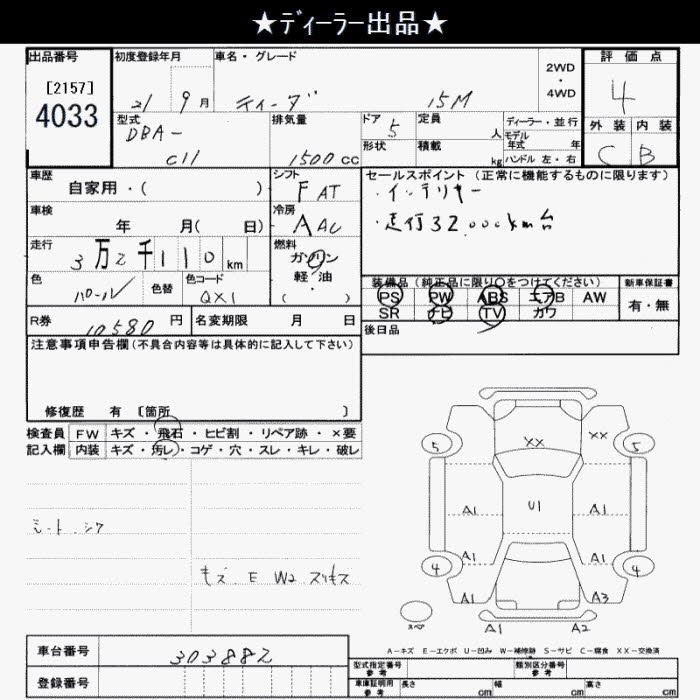 ★ディーラー出品★
出品番号 初度登録年月 車名・グレード 2WD・4WD 評価点
[2157]
4033
21 9月 ティーダ 15M 4
型式 排気量 ドア 定員 人 ディーラー・並行 外装 内装
DBA-
C11 1500cc 5
形状 積載 kg モデル年式 年 ハンドル 左・右 C B
車歴 シフト セールスポイント (正常に機能するものに限ります)
自家用・( ) F AT ・インテリキー
車検 冷房 ・走行32,000km台
年 月( 日) A AC
走行 燃料
3万2千110km ガソリン
軽・油
( )
色 色替 色コード 装備品 (純正品に限り○をつけてください) 新車保証書
パール QX1 PS PW ABS エアB AW 有・無
SR ナビ TV カワ
R券 10580円 名変期限 月 日 後日品
注意事項申告欄 (不具合内容等は具体的に記入して下さい)
修復歴 有 〔箇所 〕
検査員 FW キズ・飛石・ヒビ割・リペア跡・×要
記入欄 内装 キズ・汚レ・コゲ・穴・スレ・キレ・破レ
シート・シワ
キズ E W2 スリキズ
XX XX
5 5
A1 U1 A1
A1 A1
4 4
A1 A3
スペア A1 A2
A-キズ E-エクボ U-凹み W-補修跡 S-サビ C-腐食 XX-交換済
車台番号 303882
登録番号
型式指定番号 参考 類別区分番号 参考
車庫証明用 参考 長さ cm 幅 cm 高さ cm